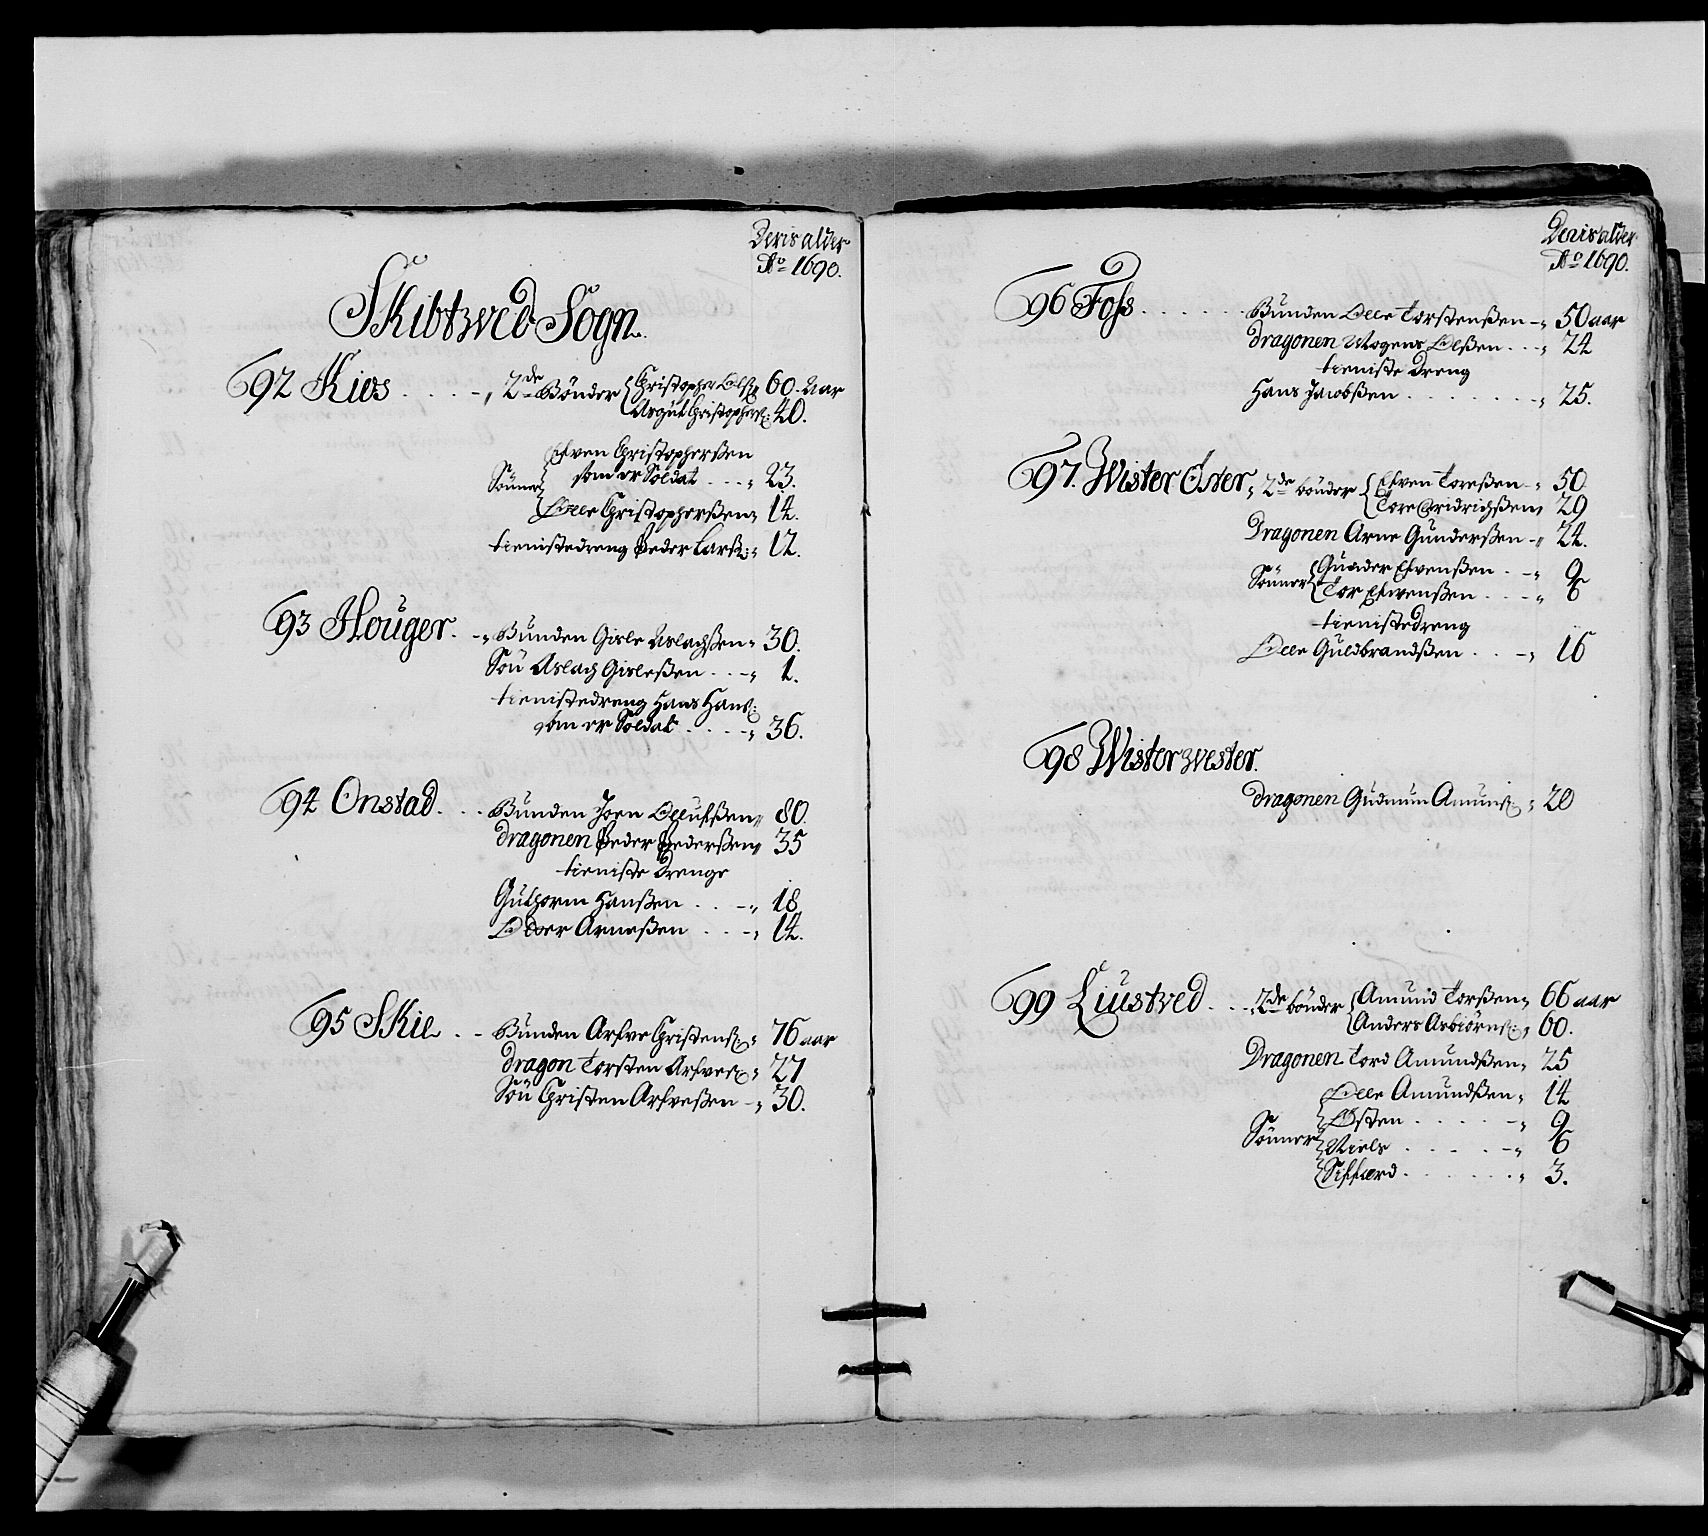 Deris alder
Ao 1690.
Skibtved Sogn.
92 Kios . . . . - „ 2de Bönder Christopher Olsß: 60. Aar
Asgut Christophersß: 40.
Elven Christopherßen
som er Soldat . . . „ 23.
Sönner
Olle Christopherßen „ 14.
tienistedreng Peder Larß: „ 12.
93 Houger. - „ Bunden Gisle Aslachßen „ 30.
Sön Aslach Gisleßen . . - „ 1.
tienistedreng Hans Hanß:
som er Soldat . . . - „ 36.
94 Onstad . . . Bunden Joen Ollufßen „ 80.
dragonen Peder Pederßen „ 35
tieniste Drenge
Guthorm Hanßen . . - „ 18
Peder Arneßen . . . - „ 14.
95 Skie . . - Bunden Arfve Christensß: „ 76 aar
dragon Torsten Arfvesß: „ 27
Sön Christen Arfveßen - „ 30.
Deris alder
Ao 1690.
96 Foss . . . . . . Bunden Olle Torstenßen - „ 50 aar
dragonen Mogens Olßen . . - „ 24
tieniste Dreng
Hans Jacobßen . . . . . . . „ 25.
97. Wister Öster „ 2de bönder Elven Toreßen - „ 50
Tore Eridrichßen „ 29
Dragonen Arne Gunderßen - „ 24.
Sönner Gunder Elvenßen . - „ 9
Tor Elvenßen . . - „ 6
tienistedreng
Olle Guldbrandßen . . - „ 16
98 Wister Wester.
dragonen Gudmun Amunsß: „ 20
99 Liustved . . . „ 2de bönder Amund Torßen „ 66 aar
Anders Asbiörnsß: „ 60.
Dragonen Tord Amundßen „ 25
Olle Amundßen „ 14
Östen . . . . . - „ 9
Sönner
Niels . . . . . - „ 6
Siffuerd . . . . . . „ 3.